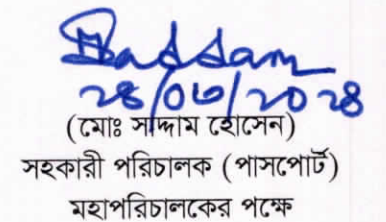 Saddam
২৪/০৩/২০২৪
(মোঃ সাদ্দাম হোসেন)
সহকারী পরিচালক (পাসপোর্ট)
মহাপরিচালকের পক্ষে